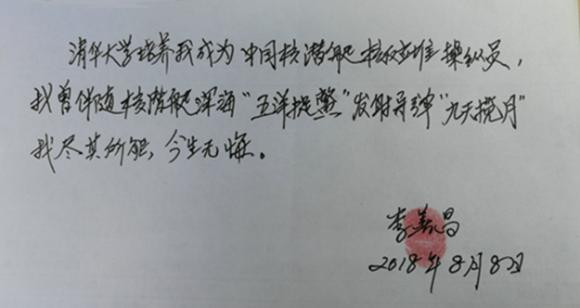 清华大学培养我成为中国核潜艇核反应堆操纵员,
我曾伴随核潜艇深海“五洋捉鳖”发射导弹“九天揽月”
我尽其所能,今生无悔。
李義昌
2018年8月8日